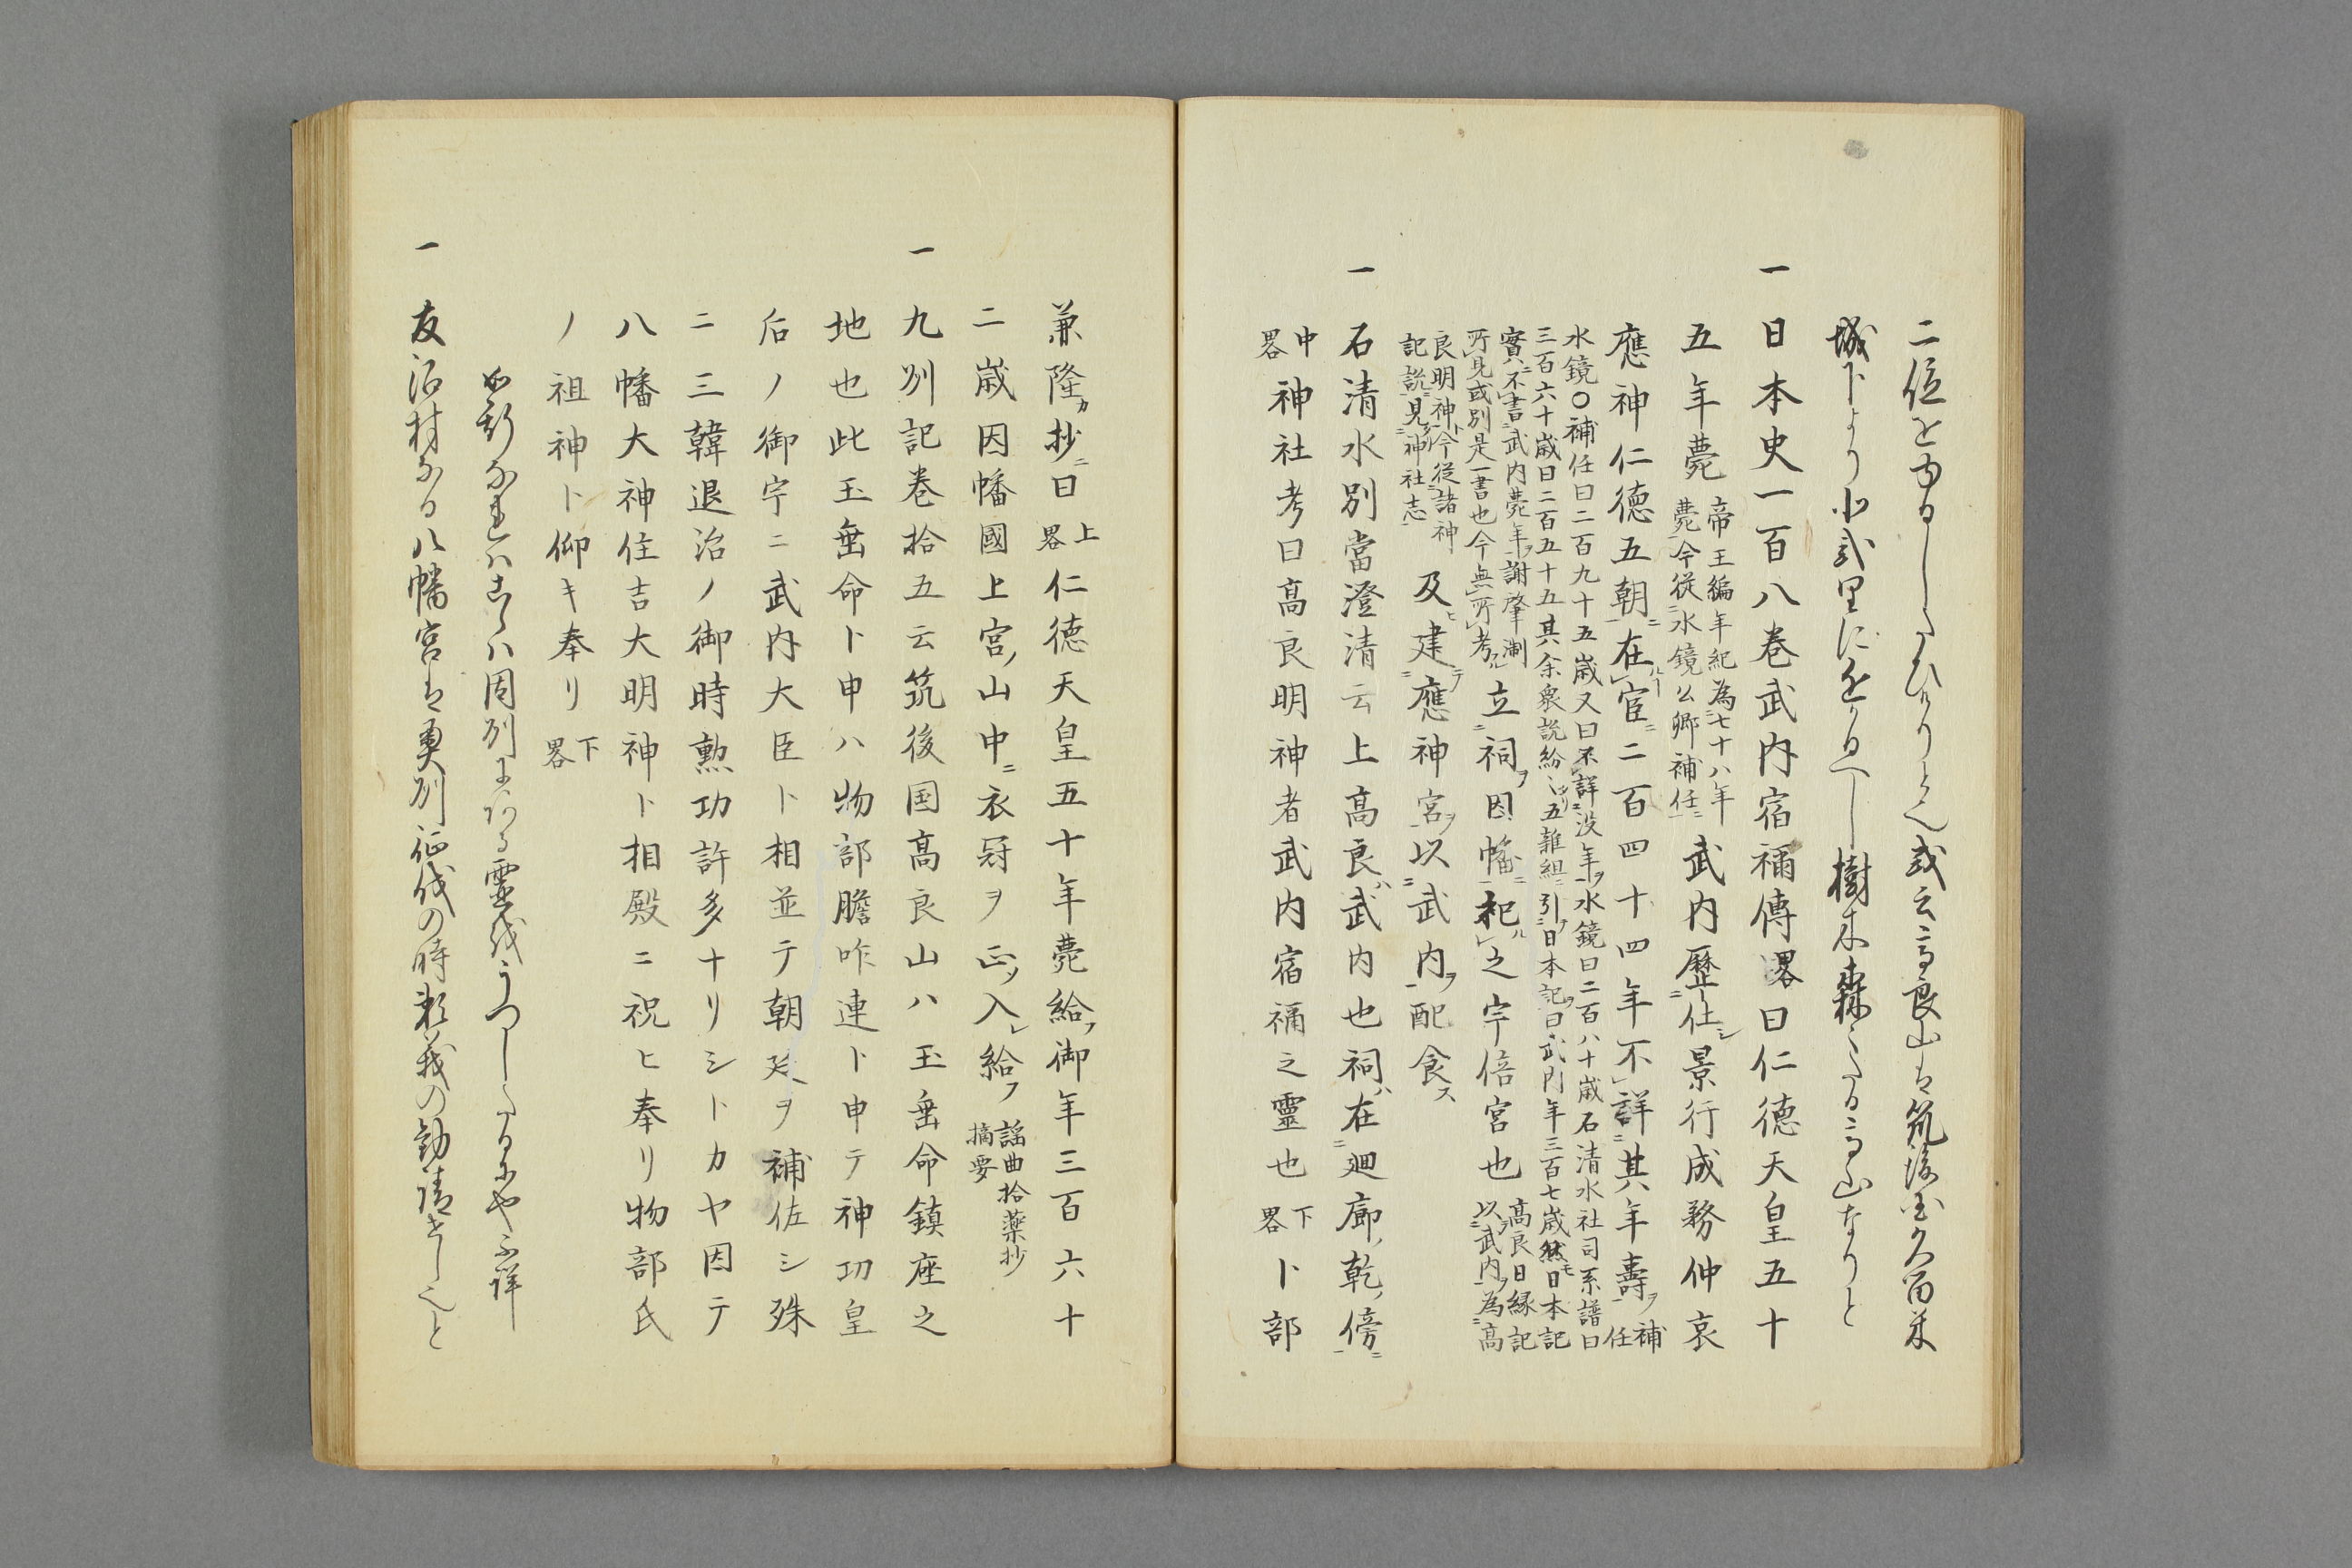 二位をゆるしたまひけりとそ或云高良山は筑後国久留米
城下より小弐里に近かるへし樹木森々たる高山なりと
一 日本史一百八巻武内宿禰傳畧曰仁徳天皇五十
五年薨
帝王編年紀為七十八年
薨今従水鏡公卿補任
武内歴仕シ景行成務仲哀
應神仁徳五朝ニ在官ニ二百四十四年不詳其年壽ヲ
補任
水鏡〇補任曰二百九十五歳又曰不詳没年ヲ水鏡曰二百八十歳石清水社司系譜曰
三百六十歳曰二百五十五其余衆説紛〻五雑組引日本記曰武内年三百七歳然日本記
實ハ不書武内薨年ヲ謝肇淛
所見或別是一書也今無所考
立祠ヲ因幡祀之宇倍宮也
高良曰縁記
以武内為高
良明神今従諸神
記説見神社志
及建應神宮ヲ以武内ヲ配食ス
一 石清水別當澄清云上高良ハ武内也祠ハ在廻廊ノ乾ノ傍
中畧
神社考曰高良明神者武内宿禰之靈也
下畧
卜部
兼隆カ抄ニ曰
上畧
仁徳天皇五十年薨給フ御年三百六十
二歳因幡國上宮ノ山中ニ衣冠ヲ正ソ入レ給フ
謡曲拾葉抄
摘要
一 九州記巻拾五云筑後国高良山ハ玉垂命鎮座之
地也此玉垂命ト申ハ物部膽咋連ト申テ神功皇
后ノ御宇ニ武内大臣ト相並テ朝廷ヲ補佐シ殊
ニ三韓退治ノ御時勲功許多ナリシトカヤ因テ
八幡大神住吉大明神ト相殿ニ祝ヒ奉リ物部氏
ノ祖神ト仰キ奉リ
下畧
如斯なれはこゝハ周列にある靈代うつしたるにや不詳
一 友沼村なる八幡宮は奥列征伐の時頼義の勧請せしと